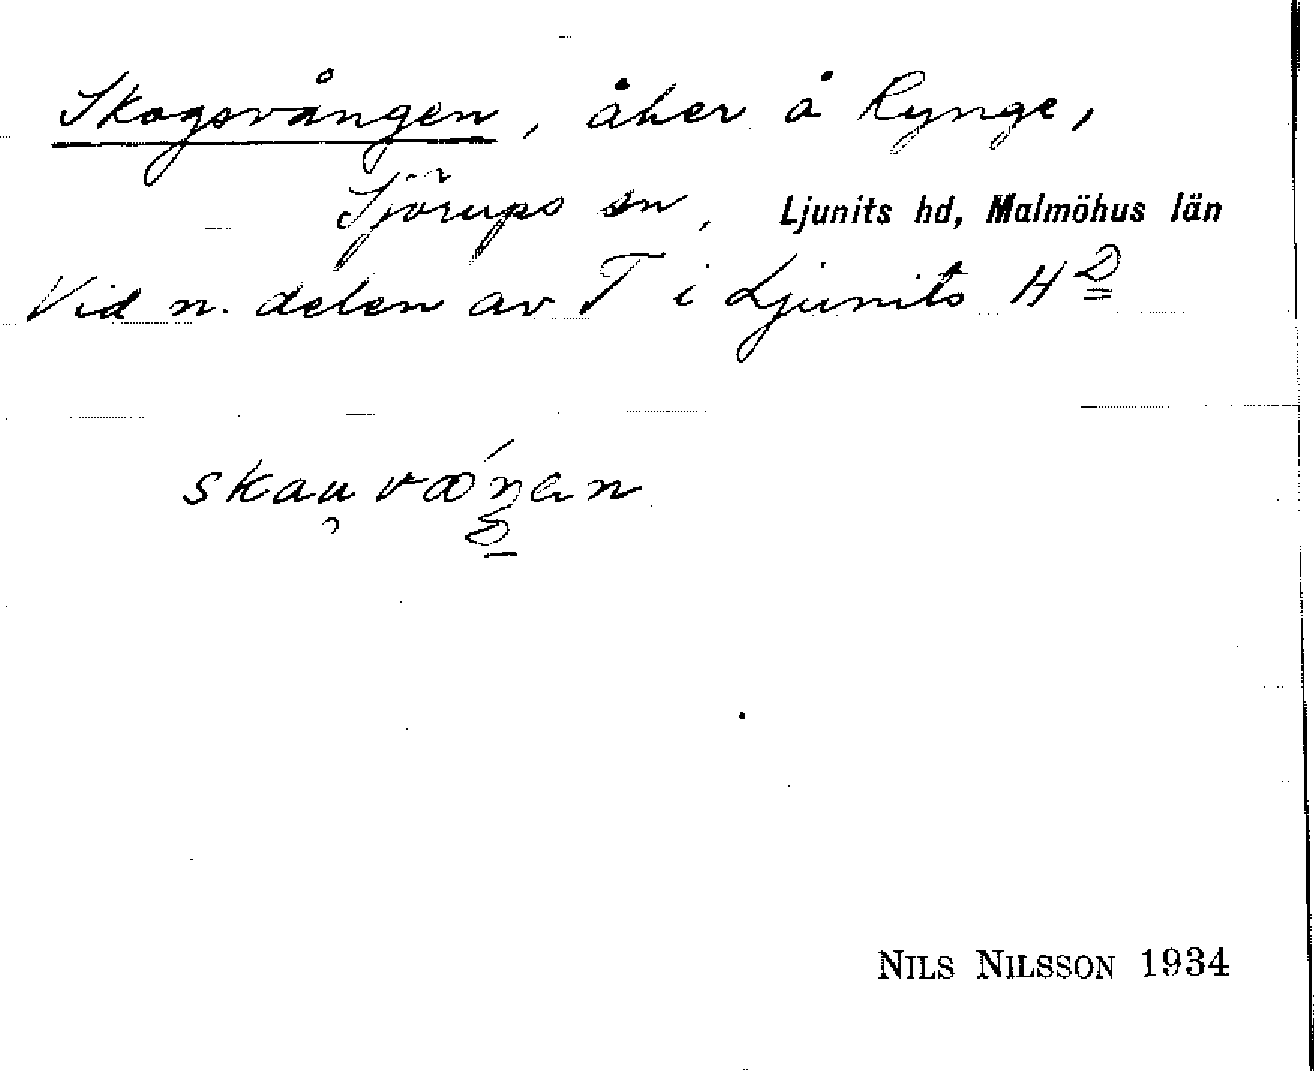 Skogsvången, åker å Rynge,
Sjörups sn, Ljunits hd, Malmöhus län
Vid n. delen av T i Ljunits HD
skau
NILS NILSSON 1934